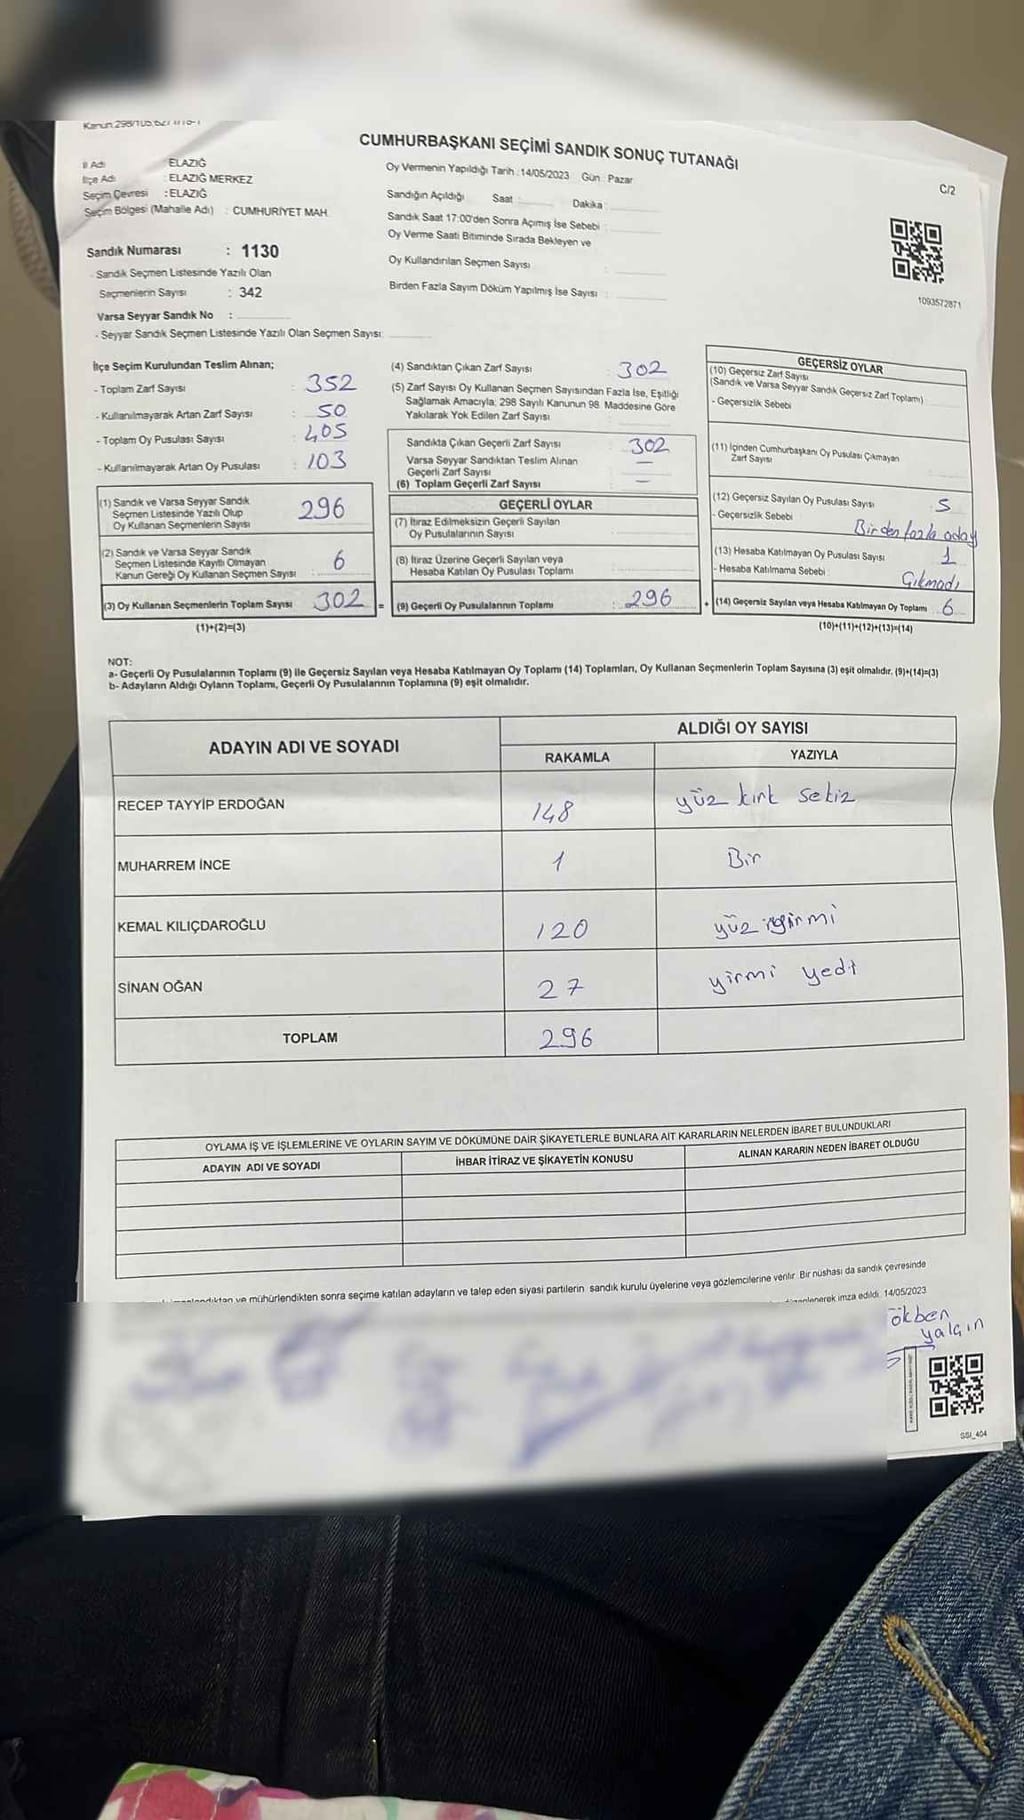 Kanun:298/105,
CUMHURBAŞKANI SEÇİMİ SANDIK SONUÇ TUTANAĞI
C/2
İl Adı : ELAZIĞ
İlçe Adı : ELAZIĞ MERKEZ
Seçim Çevresi : ELAZIĞ
Seçim Bölgesi (Mahalle Adı) : CUMHURİYET MAH.
Sandık Numarası : 1130
- Sandık Seçmen Listesinde Yazılı Olan
Seçmenlerin Sayısı : 342
Varsa Seyyar Sandık No :
- Seyyar Sandık Seçmen Listesinde Yazılı Olan Seçmen Sayısı:
Oy Vermenin Yapıldığı Tarih :14/05/2023 Gün : Pazar
Sandığın Açıldığı Saat : Dakika :
Sandık Saat 17:00'den Sonra Açımış İse Sebebi :
Oy Verme Saati Bitiminde Sırada Bekleyen ve
Oy Kullandırılan Seçmen Sayısı :
Birden Fazla Sayım Döküm Yapılmış İse Sayısı :
1093572871
İlçe Seçim Kurulundan Teslim Alınan;
- Toplam Zarf Sayısı : 352
- Kullanılmayarak Artan Zarf Sayısı : 50
- Toplam Oy Pusulası Sayısı : 405
- Kullanılmayarak Artan Oy Pusulası : 103
(1) Sandık ve Varsa Seyyar Sandık
Seçmen Listesinde Yazılı Olup
Oy Kullanan Seçmenlerin Sayısı 296
(2) Sandık ve Varsa Seyyar Sandık
Seçmen Listesinde Kayıtlı Olmayan
Kanun Gereği Oy Kullanan Seçmen Sayısı 6
(3) Oy Kullanan Seçmenlerin Toplam Sayısı 302 =
(1)+(2)=(3)
(4) Sandıktan Çıkan Zarf Sayısı : 302
(5) Zarf Sayısı Oy Kullanan Seçmen Sayısından Fazla İse, Eşitliği
Sağlamak Amacıyla; 298 Sayılı Kanunun 98. Maddesine Göre
Yakılarak Yok Edilen Zarf Sayısı
Sandıkta Çıkan Geçerli Zarf Sayısı : 302
Varsa Seyyar Sandıktan Teslim Alınan
Geçerli Zarf Sayısı —
(6) Toplam Geçerli Zarf Sayısı —
GEÇERLİ OYLAR
(7) İtiraz Edilmeksizin Geçerli Sayılan
Oy Pusulalarının Sayısı
(8) İtiraz Üzerine Geçerli Sayılan veya
Hesaba Katılan Oy Pusulası Toplamı
(9) Geçerli Oy Pusulalarının Toplamı : 296 +
GEÇERSİZ OYLAR
(10) Geçersiz Zarf Sayısı
(Sandık ve Varsa Seyyar Sandık Geçersiz Zarf Toplamı)
- Geçersizlik Sebebi
(11) İçinden Cumhurbaşkanı Oy Pusulası Çıkmayan
Zarf Sayısı
(12) Geçersiz Sayılan Oy Pusulası Sayısı 5
- Geçersizlik Sebebi Birden fazla aday
(13) Hesaba Katılmayan Oy Pusulası Sayısı 1
- Hesaba Katılmama Sebebi : Çıkmadı
(14) Geçersiz Sayılan veya Hesaba Katılmayan Oy Toplamı 6
(10)+(11)+(12)+(13)=(14)
NOT:
a- Geçerli Oy Pusulalarının Toplamı (9) ile Geçersiz Sayılan veya Hesaba Katılmayan Oy Toplamı (14) Toplamları, Oy Kullanan Seçmenlerin Toplam Sayısına (3) eşit olmalıdır. (9)+(14)=(3)
b- Adayların Aldığı Oyların Toplamı, Geçerli Oy Pusulalarının Toplamına (9) eşit olmalıdır.
ADAYIN ADI VE SOYADI ALDIĞI OY SAYISI
RAKAMLA YAZIYLA
RECEP TAYYİP ERDOĞAN 148 yüz kırk sekiz
MUHARREM İNCE 1 Bir
KEMAL KILIÇDAROĞLU 120 yüz yirmi
SİNAN OĞAN 27 yirmi yedi
TOPLAM 296
OYLAMA İŞ VE İŞLEMLERİNE VE OYLARIN SAYIM VE DÖKÜMÜNE DAİR ŞİKAYETLERLE BUNLARA AİT KARARLARIN NELERDEN İBARET BULUNDUKLARI
ADAYIN ADI VE SOYADI İHBAR İTİRAZ VE ŞİKAYETİN KONUSU ALINAN KARARIN NEDEN İBARET OLDUĞU
ve mühürlendikten sonra seçime katılan adayların ve talep eden siyasi partilerin sandık kurulu üyelerine veya gözlemcilerine verilir. Bir nüshası da sandık çevresinde
imza edildi. 14/05/2023
ökben
yalçın
GSI_404